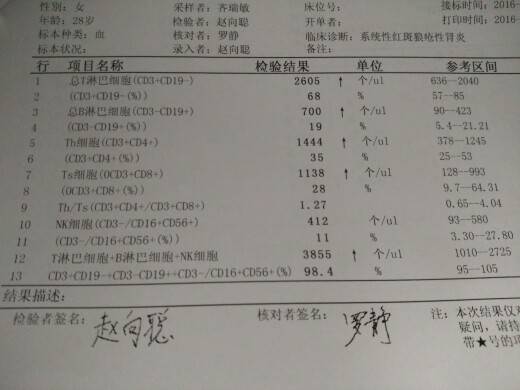 性别：女 采样者：齐瑞敏 床位号： 接标时间：2016-
年龄：28岁 检验者：赵向聪 开单者： 打印时间：2016-
标本种类：血 核对者：罗静 临床诊断：系统性红斑狼疮性肾炎
标本状况： 录入者：赵向聪 备注：
行 项目名称 检验结果 单位 参考区间
1 总T淋巴细胞(CD3+CD19-) 2605 ↑ 个/ul 636--2040
2 (CD3+CD19-(%)) 68 % 57--85
3 总B淋巴细胞(CD3-CD19+) 700 ↑ 个/ul 90--423
4 (CD3-CD19+(%)) 19 % 5.4--21.21
5 Th细胞(CD3+CD4+) 1444 ↑ 个/ul 378--1245
6 (CD3+CD4+(%)) 35 % 25--53
7 Ts细胞(OCD3+CD8+) 1138 ↑ 个/ul 128--993
8 (OCD3+CD8+(%)) 28 % 9.7--64.31
9 Th/Ts(CD3+CD4+/CD3+CD8+) 1.27 0.65--4.04
10 NK细胞(CD3-/CD16+CD56+) 412 个/ul 93--580
11 (CD3-/CD16+CD56+(%)) 11 % 3.30--27.80
12 T淋巴细胞+B淋巴细胞+NK细胞 3855 ↑ 个/ul 1010--2725
13 CD3+CD19-+CD3-CD19++CD3-/CD16+CD56+(%) 98.4 % 95--105
结果描述：
检验者签名：赵向聪 核对者签名：罗静 注：本次结果仅对
疑问，请持
带★号的项